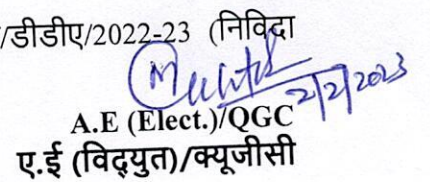 /डीडीए/2022-23 (निविदा
2/2/2023
A.E (Elect.)/QGC
ए.ई (विद्युत)/क्यूजीसी